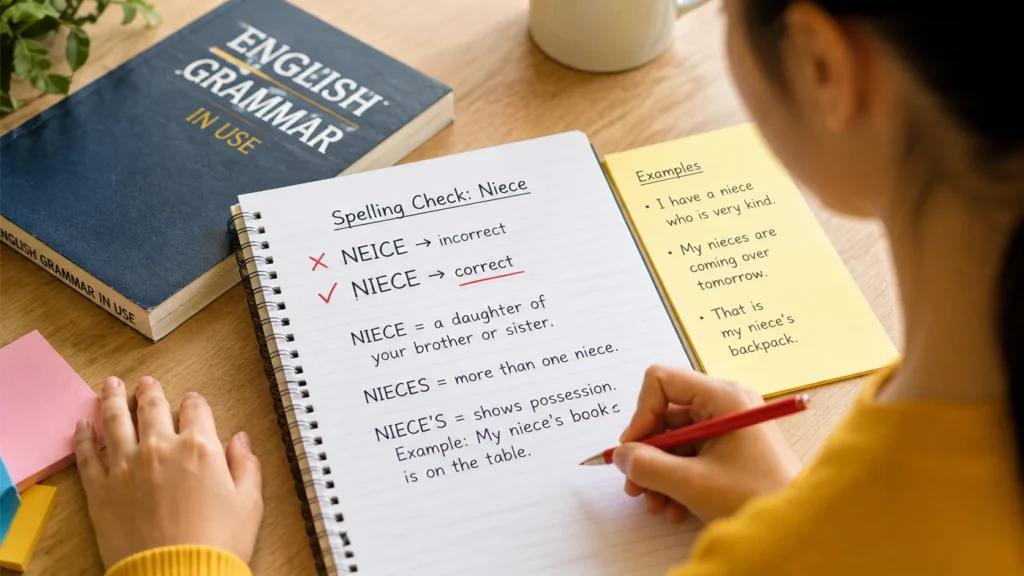 ENGLISH
GRAMMAR
IN USE
ENGLISH GRAMMAR IN USE
Spelling Check: Niece
✗ NEICE → incorrect
✓ NIECE → correct
NIECE = a daughter of
your brother or sister.
NIECES = more than one niece.
NIECE'S = shows possession.
Example: My niece's book
is on the table.
Examples
• I have a niece
who is very kind.
• My nieces are
coming over
tomorrow.
• That is
my niece's
backpack.